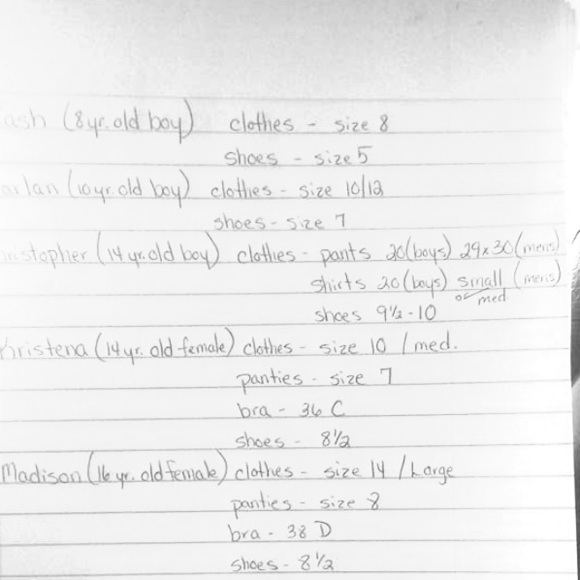 ash (8yr. old boy) clothes - size 8
shoes - size 5
arlan (10yr. old boy) clothes - size 10/12
shoes - size 7
ristopher (14 yr. old boy) clothes - pants 20 (boys) 29x30 (mens)
shirts 20 (boys) small (mens)
or med
shoes 9½ - 10
Kristena (14 yr. old female) clothes - size 10 / med.
panties - size 7
bra - 36 C
shoes - 8½
Madison (16 yr. old female) clothes - size 14 / Large
panties - size 8
bra - 38 D
shoes - 8½